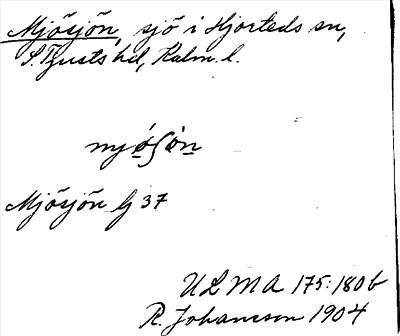 Mjösjön, sjö i Hjorteds sn,
S. Tjusts hd, Kalm. l.
myö́ʃö̀n
Mjösjön Gj 37
ULMA 175:180b
R. Johansson 1904